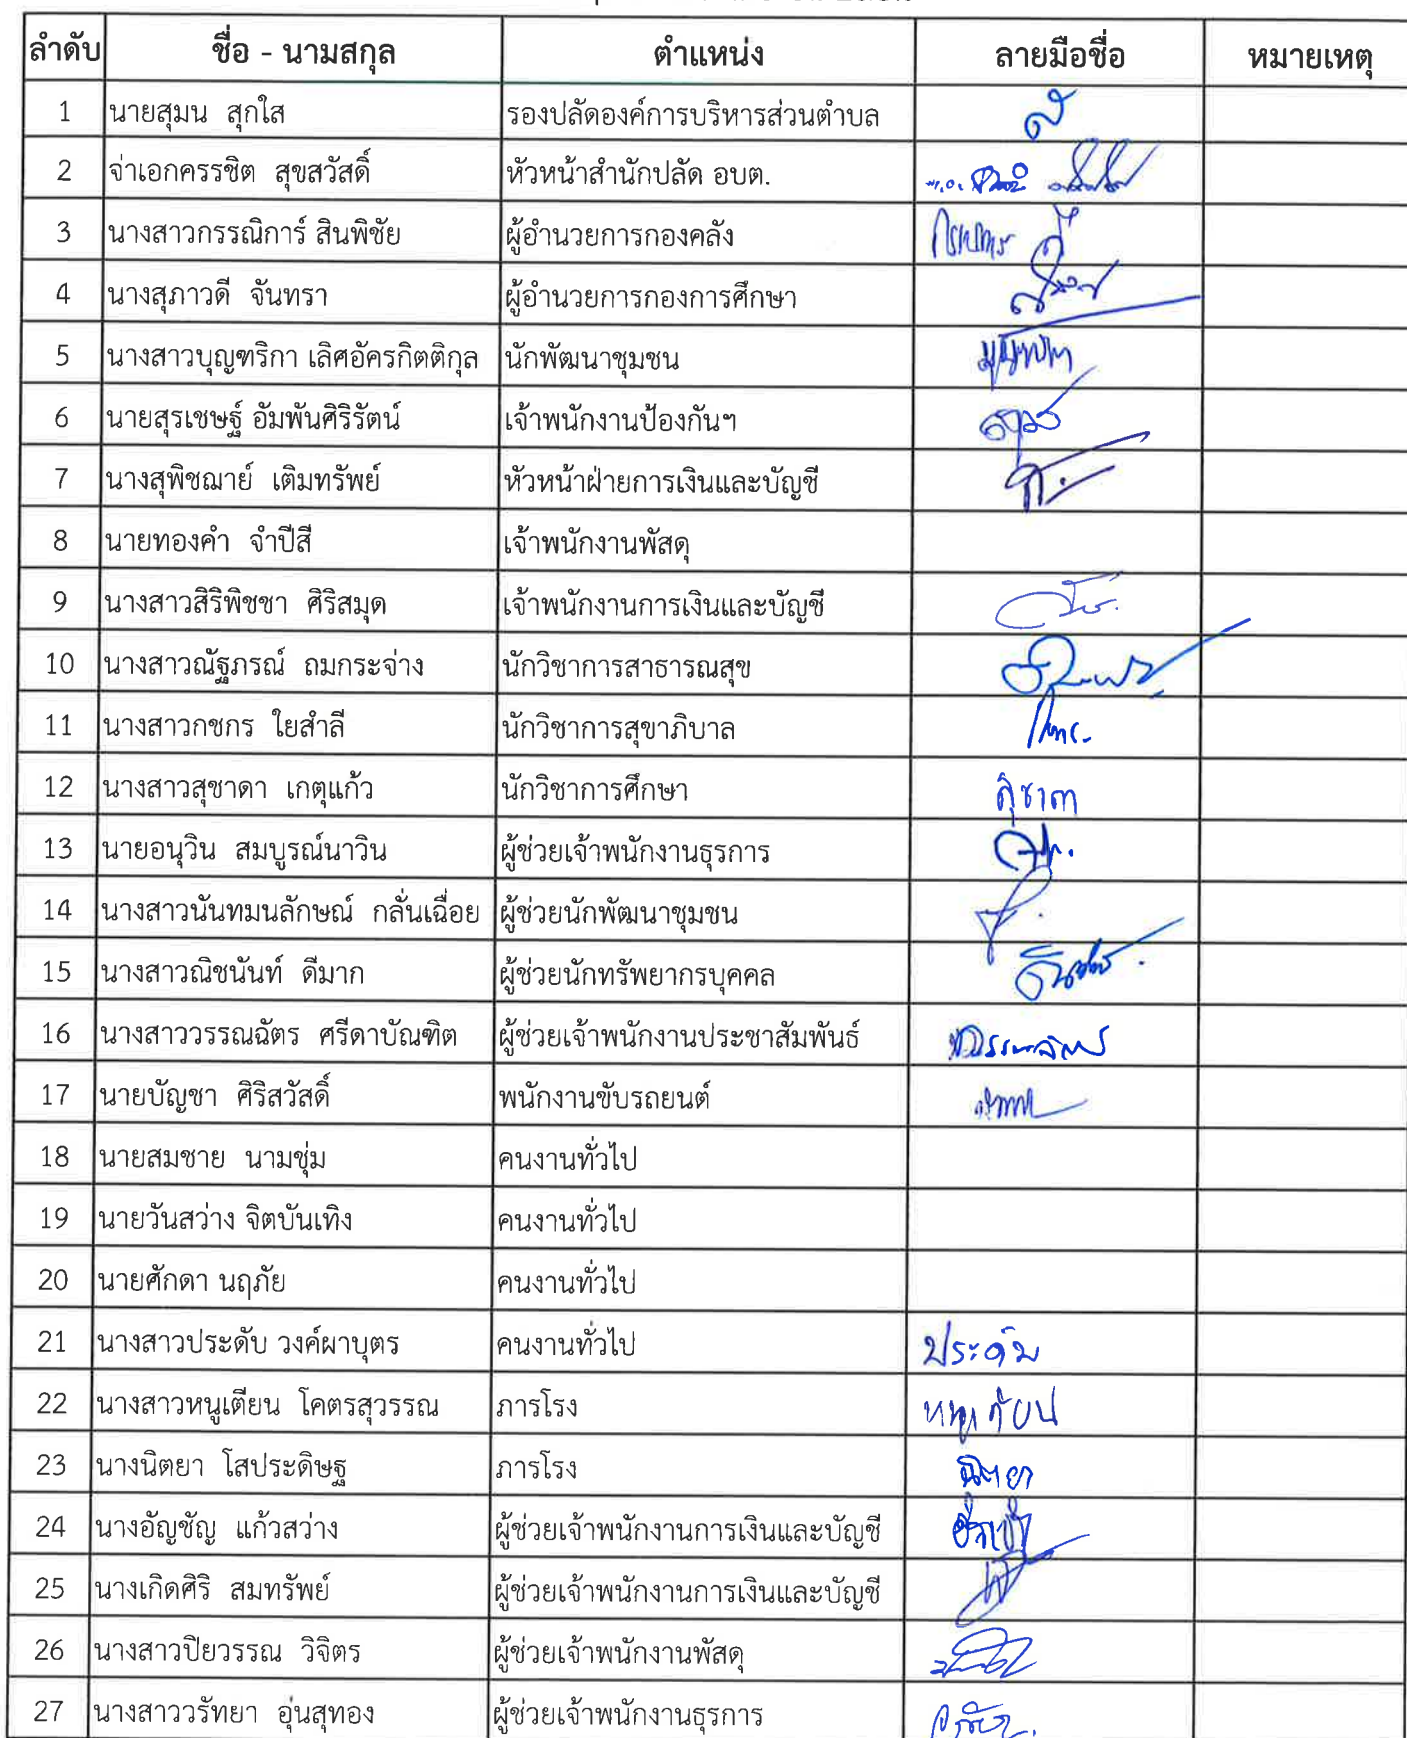 ลำดับ ชื่อ - นามสกุล ตำแหน่ง ลายมือชื่อ หมายเหตุ
1 นายสุมน สุกใส รองปลัดองค์การบริหารส่วนตำบล
2 จ่าเอกครรชิต สุขสวัสดิ์ หัวหน้าสำนักปลัด อบต.
3 นางสาวกรรณิการ์ สินพิชัย ผู้อำนวยการกองคลัง
4 นางสุภาวดี จันทรา ผู้อำนวยการกองการศึกษา
5 นางสาวบุญฑริกา เลิศอัครกิตติกุล นักพัฒนาชุมชน
6 นายสุรเชษฐ์ อัมพันศิริรัตน์ เจ้าพนักงานป้องกันฯ
7 นางสุพิชฌาย์ เติมทรัพย์ หัวหน้าฝ่ายการเงินและบัญชี
8 นายทองคำ จำปีสี เจ้าพนักงานพัสดุ
9 นางสาวสิริพิชชา ศิริสมุด เจ้าพนักงานการเงินและบัญชี
10 นางสาวณัฐภรณ์ ถมกระจ่าง นักวิชาการสาธารณสุข
11 นางสาวกชกร ใยสำลี นักวิชาการสุขาภิบาล
12 นางสาวสุชาดา เกตุแก้ว นักวิชาการศึกษา สุชาดา
13 นายอนุวิน สมบูรณ์นาวิน ผู้ช่วยเจ้าพนักงานธุรการ
14 นางสาวนันทมนลักษณ์ กลั่นเฉื่อย ผู้ช่วยนักพัฒนาชุมชน
15 นางสาวณิชนันท์ ดีมาก ผู้ช่วยนักทรัพยากรบุคคล
16 นางสาววรรณฉัตร ศรีดาบัณฑิต ผู้ช่วยเจ้าพนักงานประชาสัมพันธ์
17 นายบัญชา ศิริสวัสดิ์ พนักงานขับรถยนต์
18 นายสมชาย นามชุ่ม คนงานทั่วไป
19 นายวันสว่าง จิตบันเทิง คนงานทั่วไป
20 นายศักดา นฤภัย คนงานทั่วไป
21 นางสาวประดับ วงค์ผาบุตร คนงานทั่วไป ประดับ
22 นางสาวหนูเตียน โคตรสุวรรณ ภารโรง หนูเตียน
23 นางนิตยา โสประดิษฐ ภารโรง นิตยา
24 นางอัญชัญ แก้วสว่าง ผู้ช่วยเจ้าพนักงานการเงินและบัญชี
25 นางเกิดศิริ สมทรัพย์ ผู้ช่วยเจ้าพนักงานการเงินและบัญชี
26 นางสาวปิยวรรณ วิจิตร ผู้ช่วยเจ้าพนักงานพัสดุ
27 นางสาววรัทยา อุ่นสุทอง ผู้ช่วยเจ้าพนักงานธุรการ